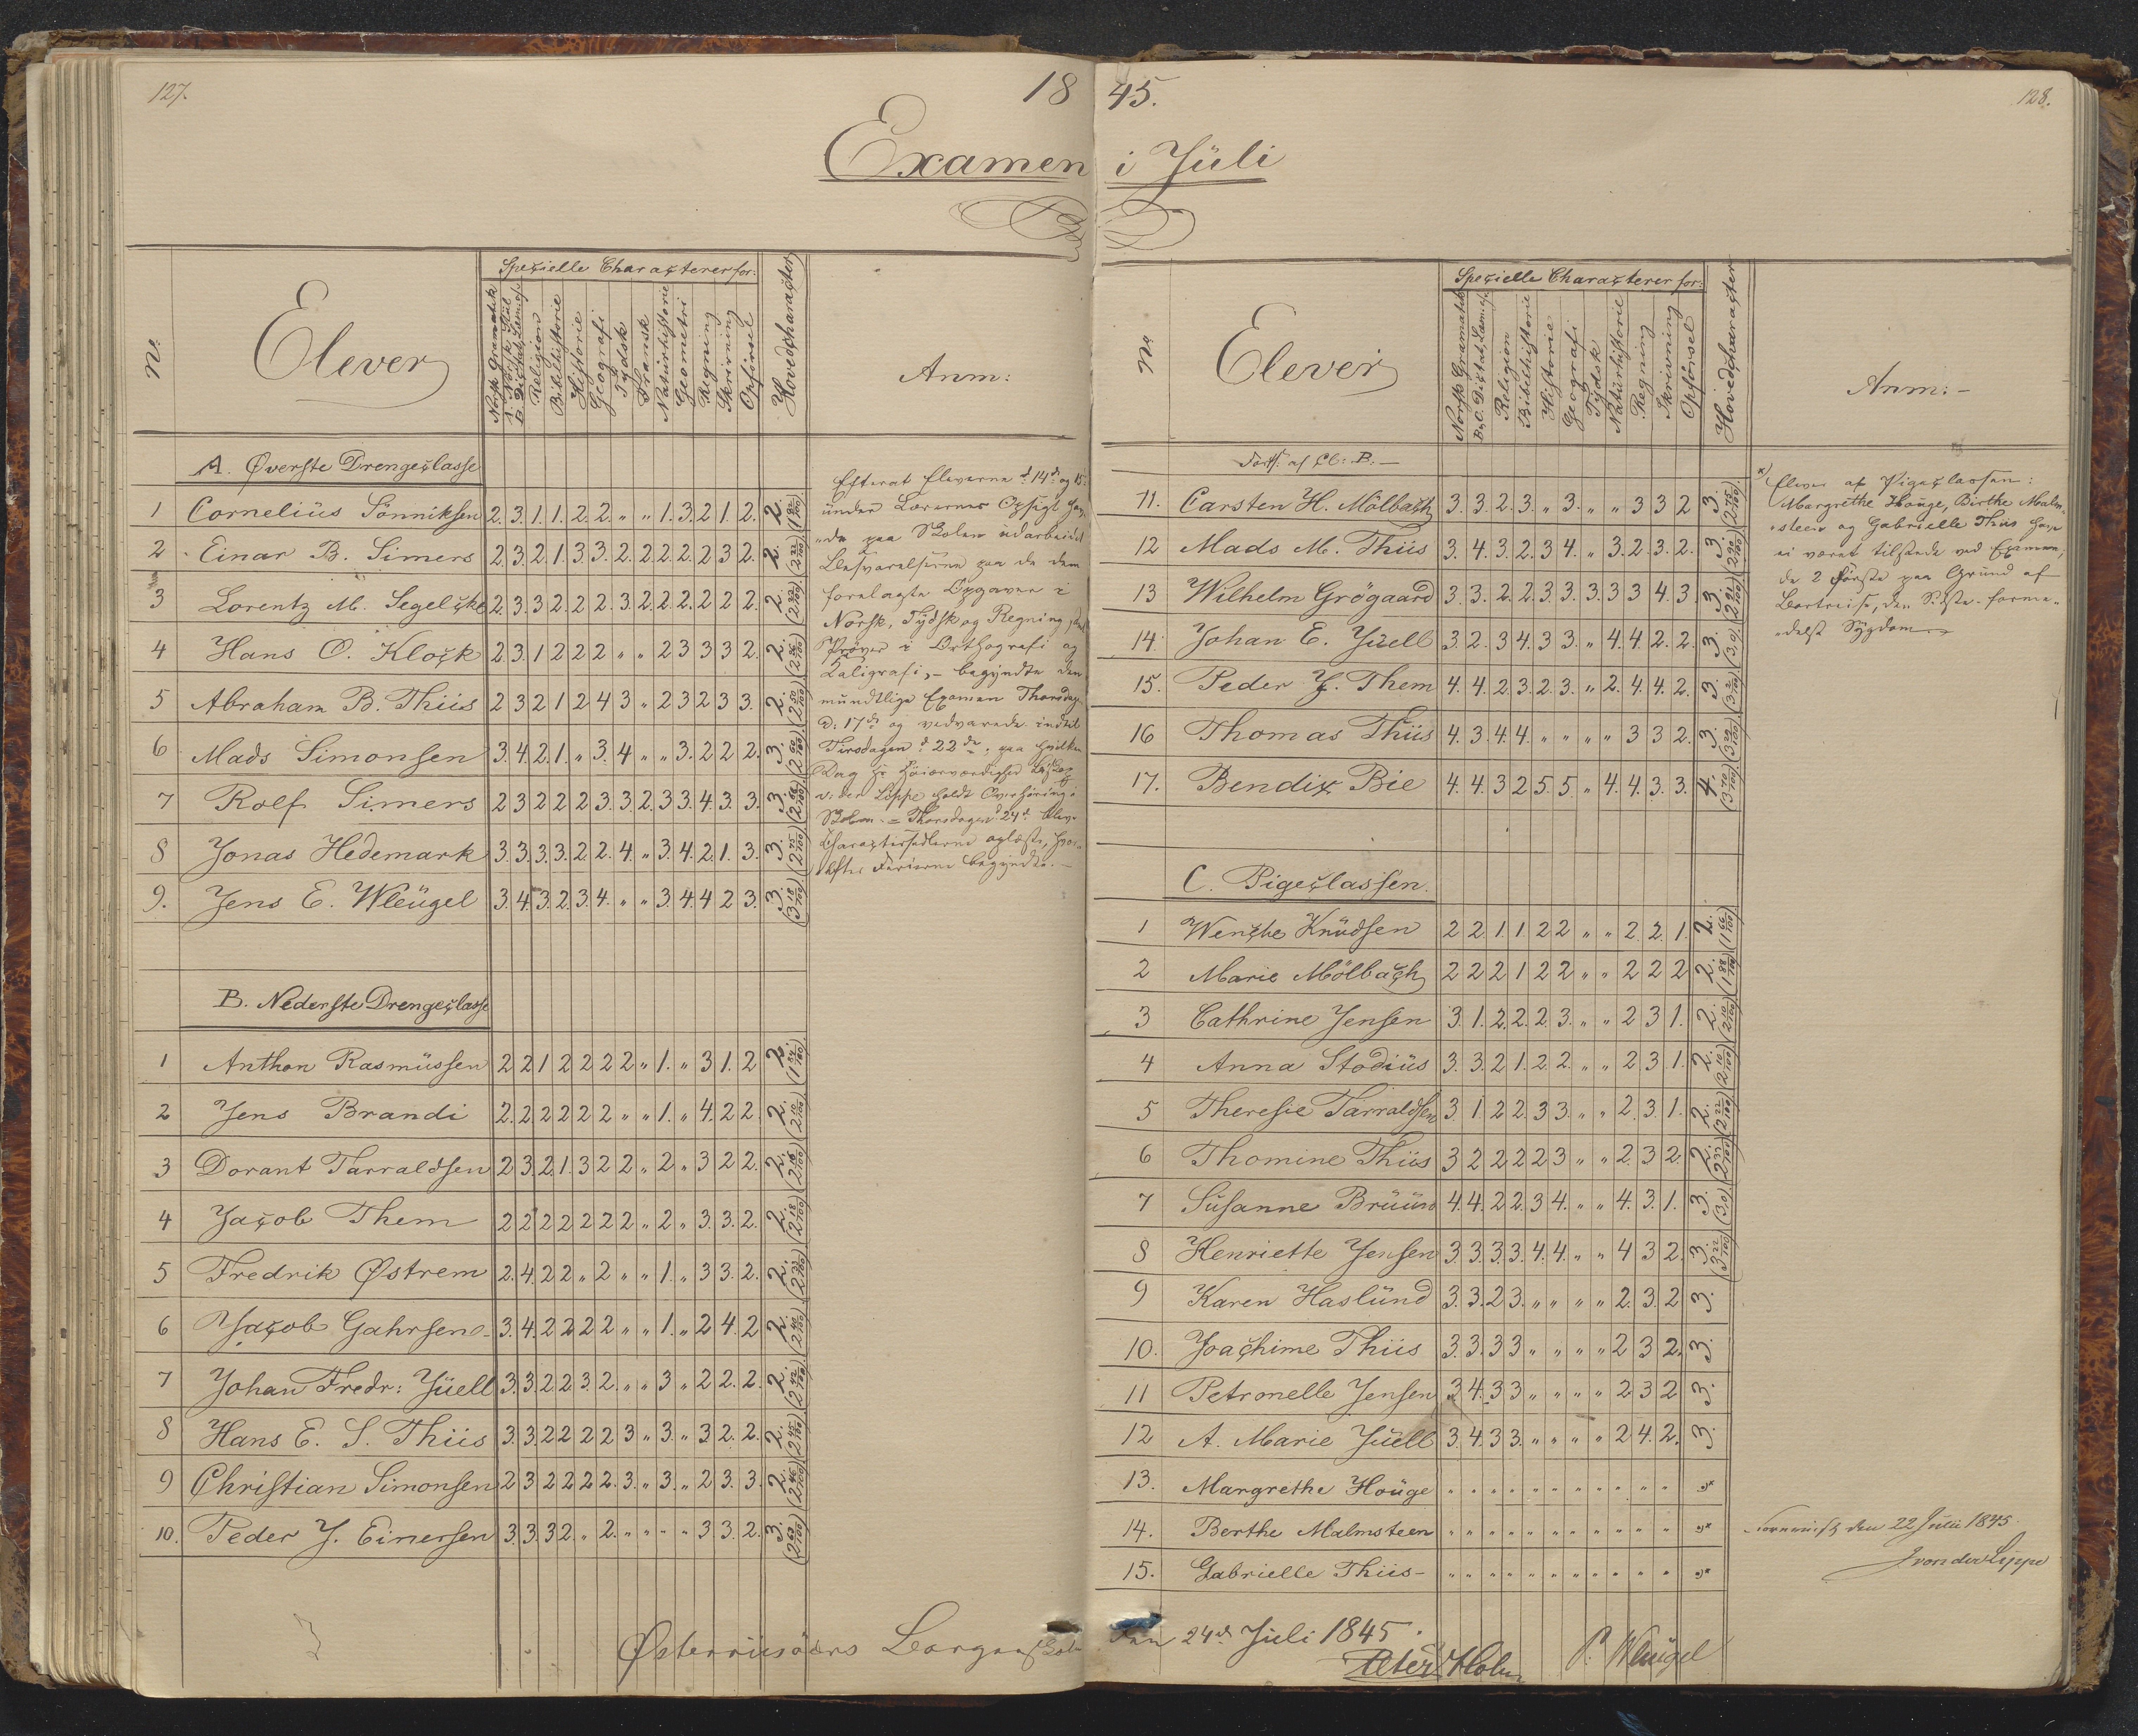 127.
18 45.
128.
Examen i Jüli
No.
Elever
Specielle Characterer for:
Norsk Gramatik
A. Norsk Stiil
B. Dictat, Læsn. &c
Religion
Bibelhistorie
Historie
Geografi
Tydsk
Fransk
Naturhistorie
Geometri
Regning
Skrivning
Opførsel
Hovedcharacter
Anm:
A. Øverste Drengeclasse
1 Cornelius Sönniksen 2. 3. 1. 1. 2. 2. " " 1. 3. 2 1. 2. 2. (1 92/100)
2 Einar B. Simers 2. 3 2. 1. 3. 3. 2. 2. 2. 2. 2 3 2. 2. (2 22/100)
3 Lorentz M. Segelcke 2. 3. 3 2. 2. 2. 3. 2. 2. 2. 2 2 2. 2.
4 Hans O. Klock 2 3. 1 2 2 2 " " 2 3 3 3 2. 2.
5 Abraham B. Thiis 2 3 2 1 2 4 3 " 2 3 2 3 3. 2. (2 50/100)
6 Mads Simonsen 3. 4. 2. 1. " 3. 4 " " 3. 2 2 2. 3.
7 Rolf Simers 2 3 2 2 2 3. 3. 2. 3 3. 4. 3. 3. 3.
8 Jonas Hedemark 3. 3. 3. 3. 2. 2. 4. " 3. 4. 2. 1. 3. 3. (2 75/100)
9. Jens E. Wleügel 3. 4. 3. 2. 3. 4. " " 3. 4. 4 2 3. 3. (3 10/100)
Efterat Eleverne d. 14de og 15
ünder Lærernes Opsigt hav-
de paa Skolen üdarbeidet
Besvarelserne paa de dem
forelagte Opgaver i
Norsk, Tydsk og Regning,
Prøver i Orthografi og
Kaligrafi, - begyndte den
mündtlige Examen Thorsdag
D: 17de og vedvarede indtil
Tirsdagen d. 22de, paa hvilken
Dag Hs Høiærværdighed Biskop
v. der Lippe holdt Overhøring i
Skolen. = Thorsdagen d. 24de bleve
Characteersedlerne oplæste, hvor-
efter Ferierne begyndte. -
B. Nederste Drengeclasse
1 Anthon Rasmüssen 2 2 1 2 2 2 2 " 1. " 3 1. 2 2.
2 Jens Brandi 2. 2 2 2 2 2 " " 1. " 4. 2 2 2. (2 10/100)
3 Dorant Tarraldsen 2 3 2 1. 3 2 2 " 2 " 3 2 2. 2.
4 Jacob Them 2 2 2 2 2 2 2 " 2 " 3. 3. 2. 2. (2 18/100)
5 Fredrik Østrem 2. 4. 2 2 " 2 " " 1. " 3 3. 2. 2.
6 Jacob Gahrsen 3. 4. 2 2 2 2 " " 1. " 2 4. 2 2. (2 40/100)
7 Johan Fredr: Jüell 3. 3. 2 2 3. 2. " " 3 " 2 2. 2. 2.
8 Hans E. S. Thiis 3. 3. 2 2 2 2 3 " 3. " 3 2. 2. 2. (2 45/100)
9 Christian Simonsen 2 3 2 2 2 2. 3. " 3. " 2 3. 3. 2. (2 46/100)
10. Peder J. Einersen 3. 3. 3 2. " 2. " " " " 3 3. 2. 3.
No
Elever
Specielle Characterer for:
Norsk Gramatik
B. C. Dictat, Læsn. &c
Religion
Bibelhistorie
Historie
Geografi
Tydsk
Naturhistorie
Regning
Skrivning
Opførsel
Hovedcharacter
Anm: -
Forts: af Cl: B: -
11. Carsten H. Mölbach 3. 3. 2. 3. " 3. " " 3 3 2 3. (2 75/100)
12 Mads M. Thiis 3. 4. 3. 2. 3 4. " 3. 2. 3. 2. 3. (2 90/100)
13 Wilhelm Grögaard 3. 3. 2. 2. 3. 3. 3. 3 3 4. 3. 3.
14. Johan E. Jüell 3. 2. 3 4. 3 3. " 4. 4. 2. 2. 3. (3,0)
15. Peder J. Them 4. 4. 2. 3. 2. 3. " 2. 4. 4. 2. 3.
16 Thomas Thiis 4. 3. 4. 4. " " " " 3 3 2. 3.
17. Bendix Bie 4. 4. 3 2 5. 5. " 4. 4. 3. 3. 4. (3 70/100)
C. Pigeclassen.
1 Wenche Knüdsen 2 2 1. 1 2 2 " " 2. 2. 1. 2. (1 66/100)
2 Marie Mölbach 2 2 2 1 2 2 " " 2 2 2 2. (1 88/100)
3 Cathrine Jensen 3. 1. 2. 2. 2. 3. " " 2 3 1. 2. (2 10/100)
4 Anna Stodiüs 3. 3. 2 1. 2 2. " " 2 3 1. 2. (2 10/100)
5 Theresie Tarraldsen 3 1. 2 2 3 3. " " 2. 3. 1. 2. (2 22/100)
6 Thomine Thiis 3 2 2 2 2 3 " " 2. 3 2. 2. (2 33/100)
7 Susanne Brüün 4. 4. 2 2. 3 4. " " 4. 3. 1. 3. (3,0)
8 Henriette Jensen 3. 3. 3. 3. 4. 4. " " 4 3 2. 3. (3 22/100)
9 Karen Haslünd 3. 3. 2 3. " " " " 2. 3. 2 3.
10. Joachime Thiis 3. 3. 3 3 " " " " 2 3 2. 3.
11 Petronelle Jensen 3 4. 3 3 " " " " 2 3 2 3.
12 A. Marie Jüell 3. 4. 3 3. " " " " 2 4. 2. 3.
13. Margrethe Houge " " " " " " " " " " " "*
14. Berthe Malmsteen " " " " " " " " " " " "*
15. Gabrielle Thiis - " " " " " " " " " " " "*
*) Elever af Pigeclassen:
Margrethe Houge, Birthe Malm-
steen og Gabrielle Thiis have
ei været tilstede ved Examen;
de 2 første paa Gründ af
Bortreise, den Sidste forme-
delst Sygdom.
den 22 Juli 1845
J von der Lippe
Østerriisöers Borgerskole den 24de Jüli 1845.
Peter Holm P. Wleügel